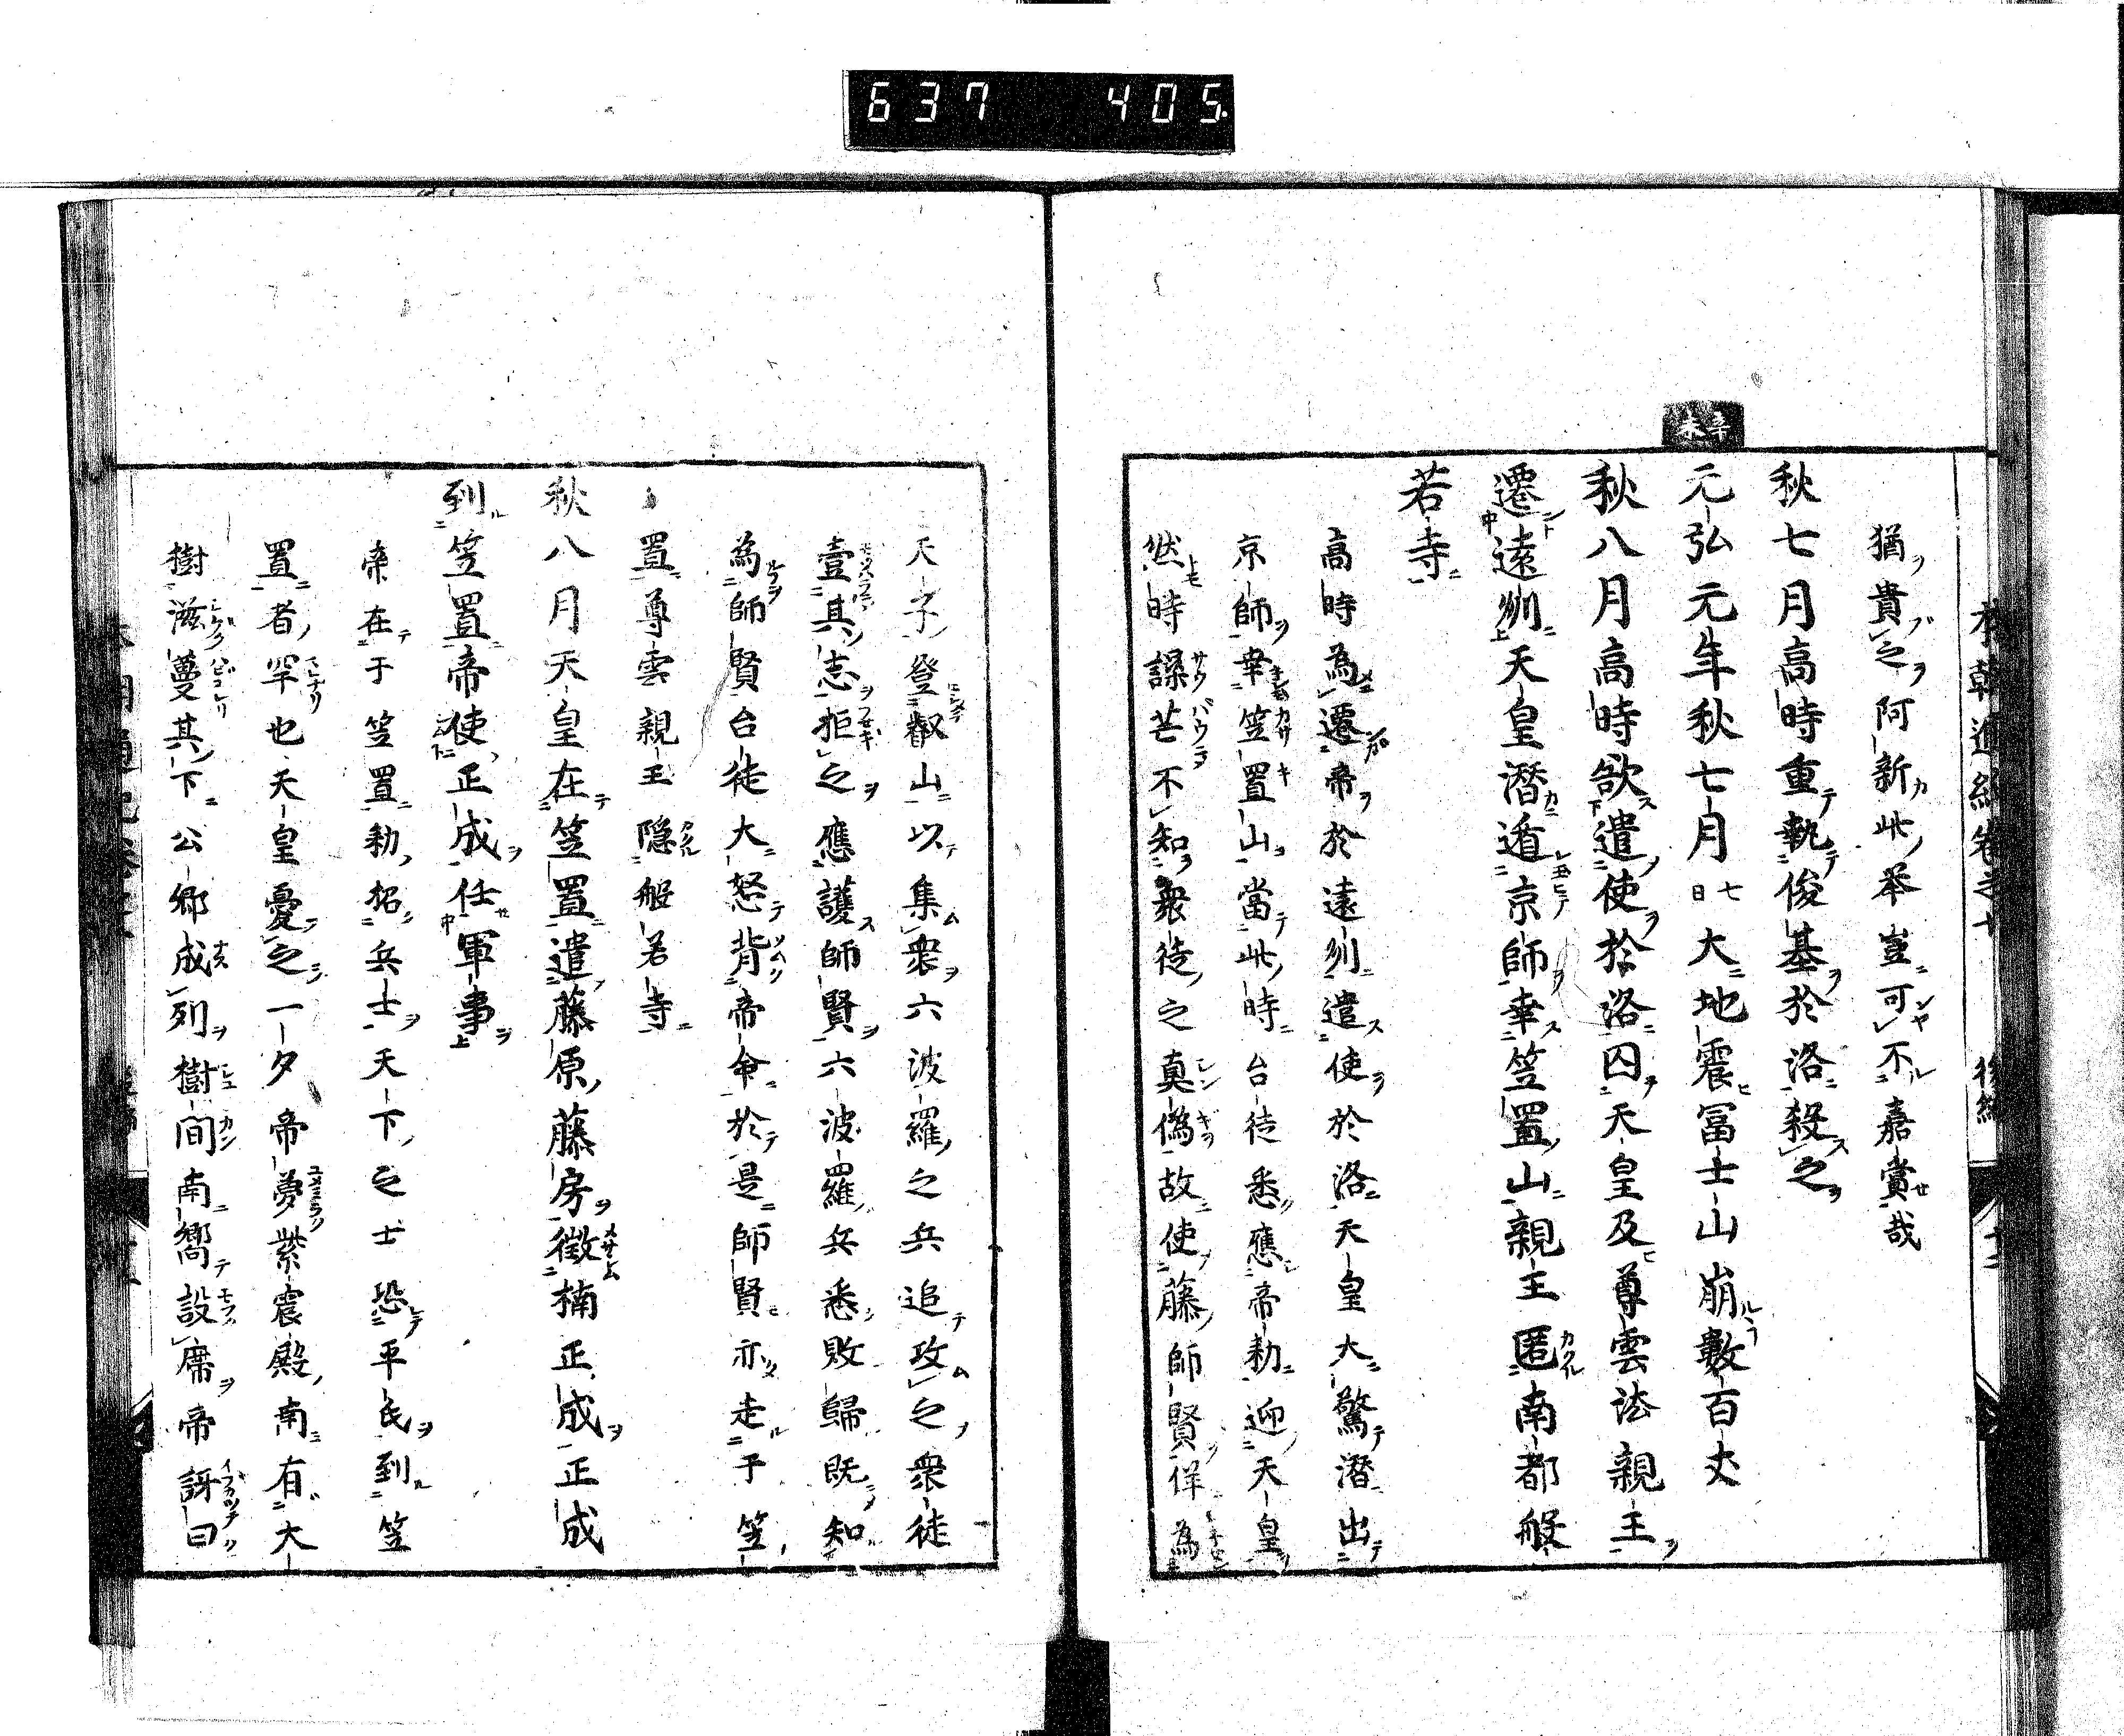 637 405
猶貴之阿新此舉豈可不嘉賞哉
秋七月高時重執俊基於洛殺之
辛未
元弘元年秋七月七日大地震冨士山崩數百丈
秋八月高時欲遣使於洛囚天皇及尊雲法親王
遷遠州天皇潛遁京師幸笠置山親王匿南都般
若寺
高時為遷帝於遠州遣使於洛天皇大驚潛出
京師幸笠置山當此時台徒悉應帝勅迎天皇
然時譟芒不知衆徒之真偽故使藤師賢佯為
天子登叡山以集衆六波羅之兵追攻之衆徒
壹其志拒之應護師賢六波羅兵悉敗歸既知
為師賢台徒大怒背帝命於是師賢亦走于笠
置尊雲親王隠般若寺
秋八月天皇在笠置遣藤原藤房徵楠正成正成
到笠置帝使正成任軍事
帝在于笠置勅招兵士天下之士恐平氏到笠
置者罕也天皇憂之一夕帝夢紫震殿南有大
樹滋蔓其下公卿成列樹間南嚮設席帝訝曰